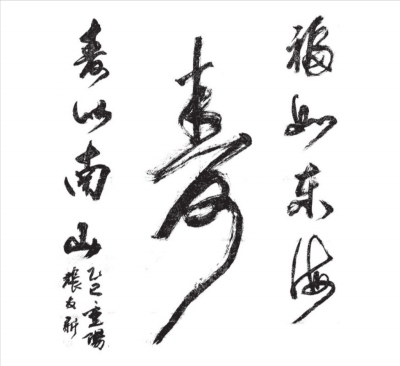 福如东海
寿
寿比南山
乙巳重陽
張友